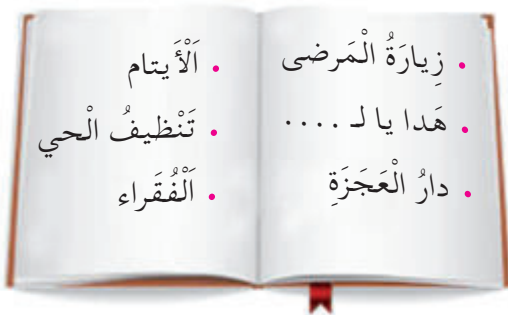 • زِيارَةُ الْمَرضى
• هَدا يا لـ ....
• دارُ الْعَجَزَةِ
• اَلْأَيتام
• تَنْظيفُ الْحي
• اَلْفُقَراء